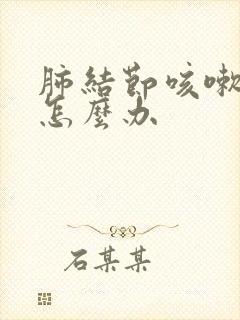 肺結節咳嗽
怎麼办
石某某